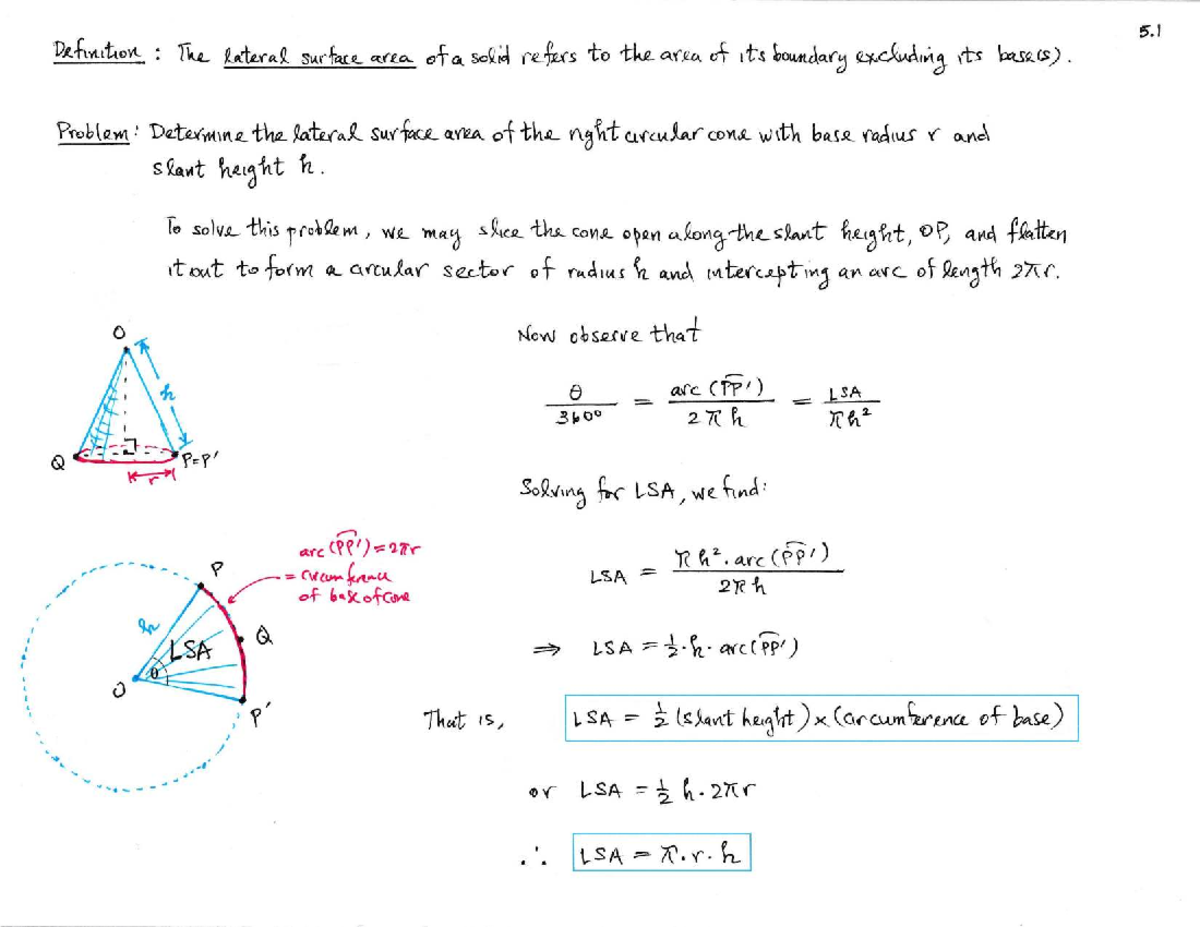 5.1
Definition : The lateral surface area of a solid refers to the area of its boundary excluding its base(s).
Problem : Determine the lateral surface area of the right circular cone with base radius r and
slant height h.
To solve this problem, we may slice the cone open along the slant height, OP, and flatten
it out to form a circular sector of radius h and intercepting an arc of length 2πr.
O
h
Q
P=P'
r
Now observe that
θ/360° = arc(PP')/2πh = LSA/πh²
Solving for LSA, we find:
LSA = πh². arc(PP')/2πh
⇒ LSA = ½·h· arc(PP')
arc(PP') = 2πr
= circumference
of base of cone
P
h
LSA
Q
θ
O
P'
That is, LSA = ½ (slant height) × (circumference of base)
or LSA = ½ h. 2πr
∴ LSA = π.r.h